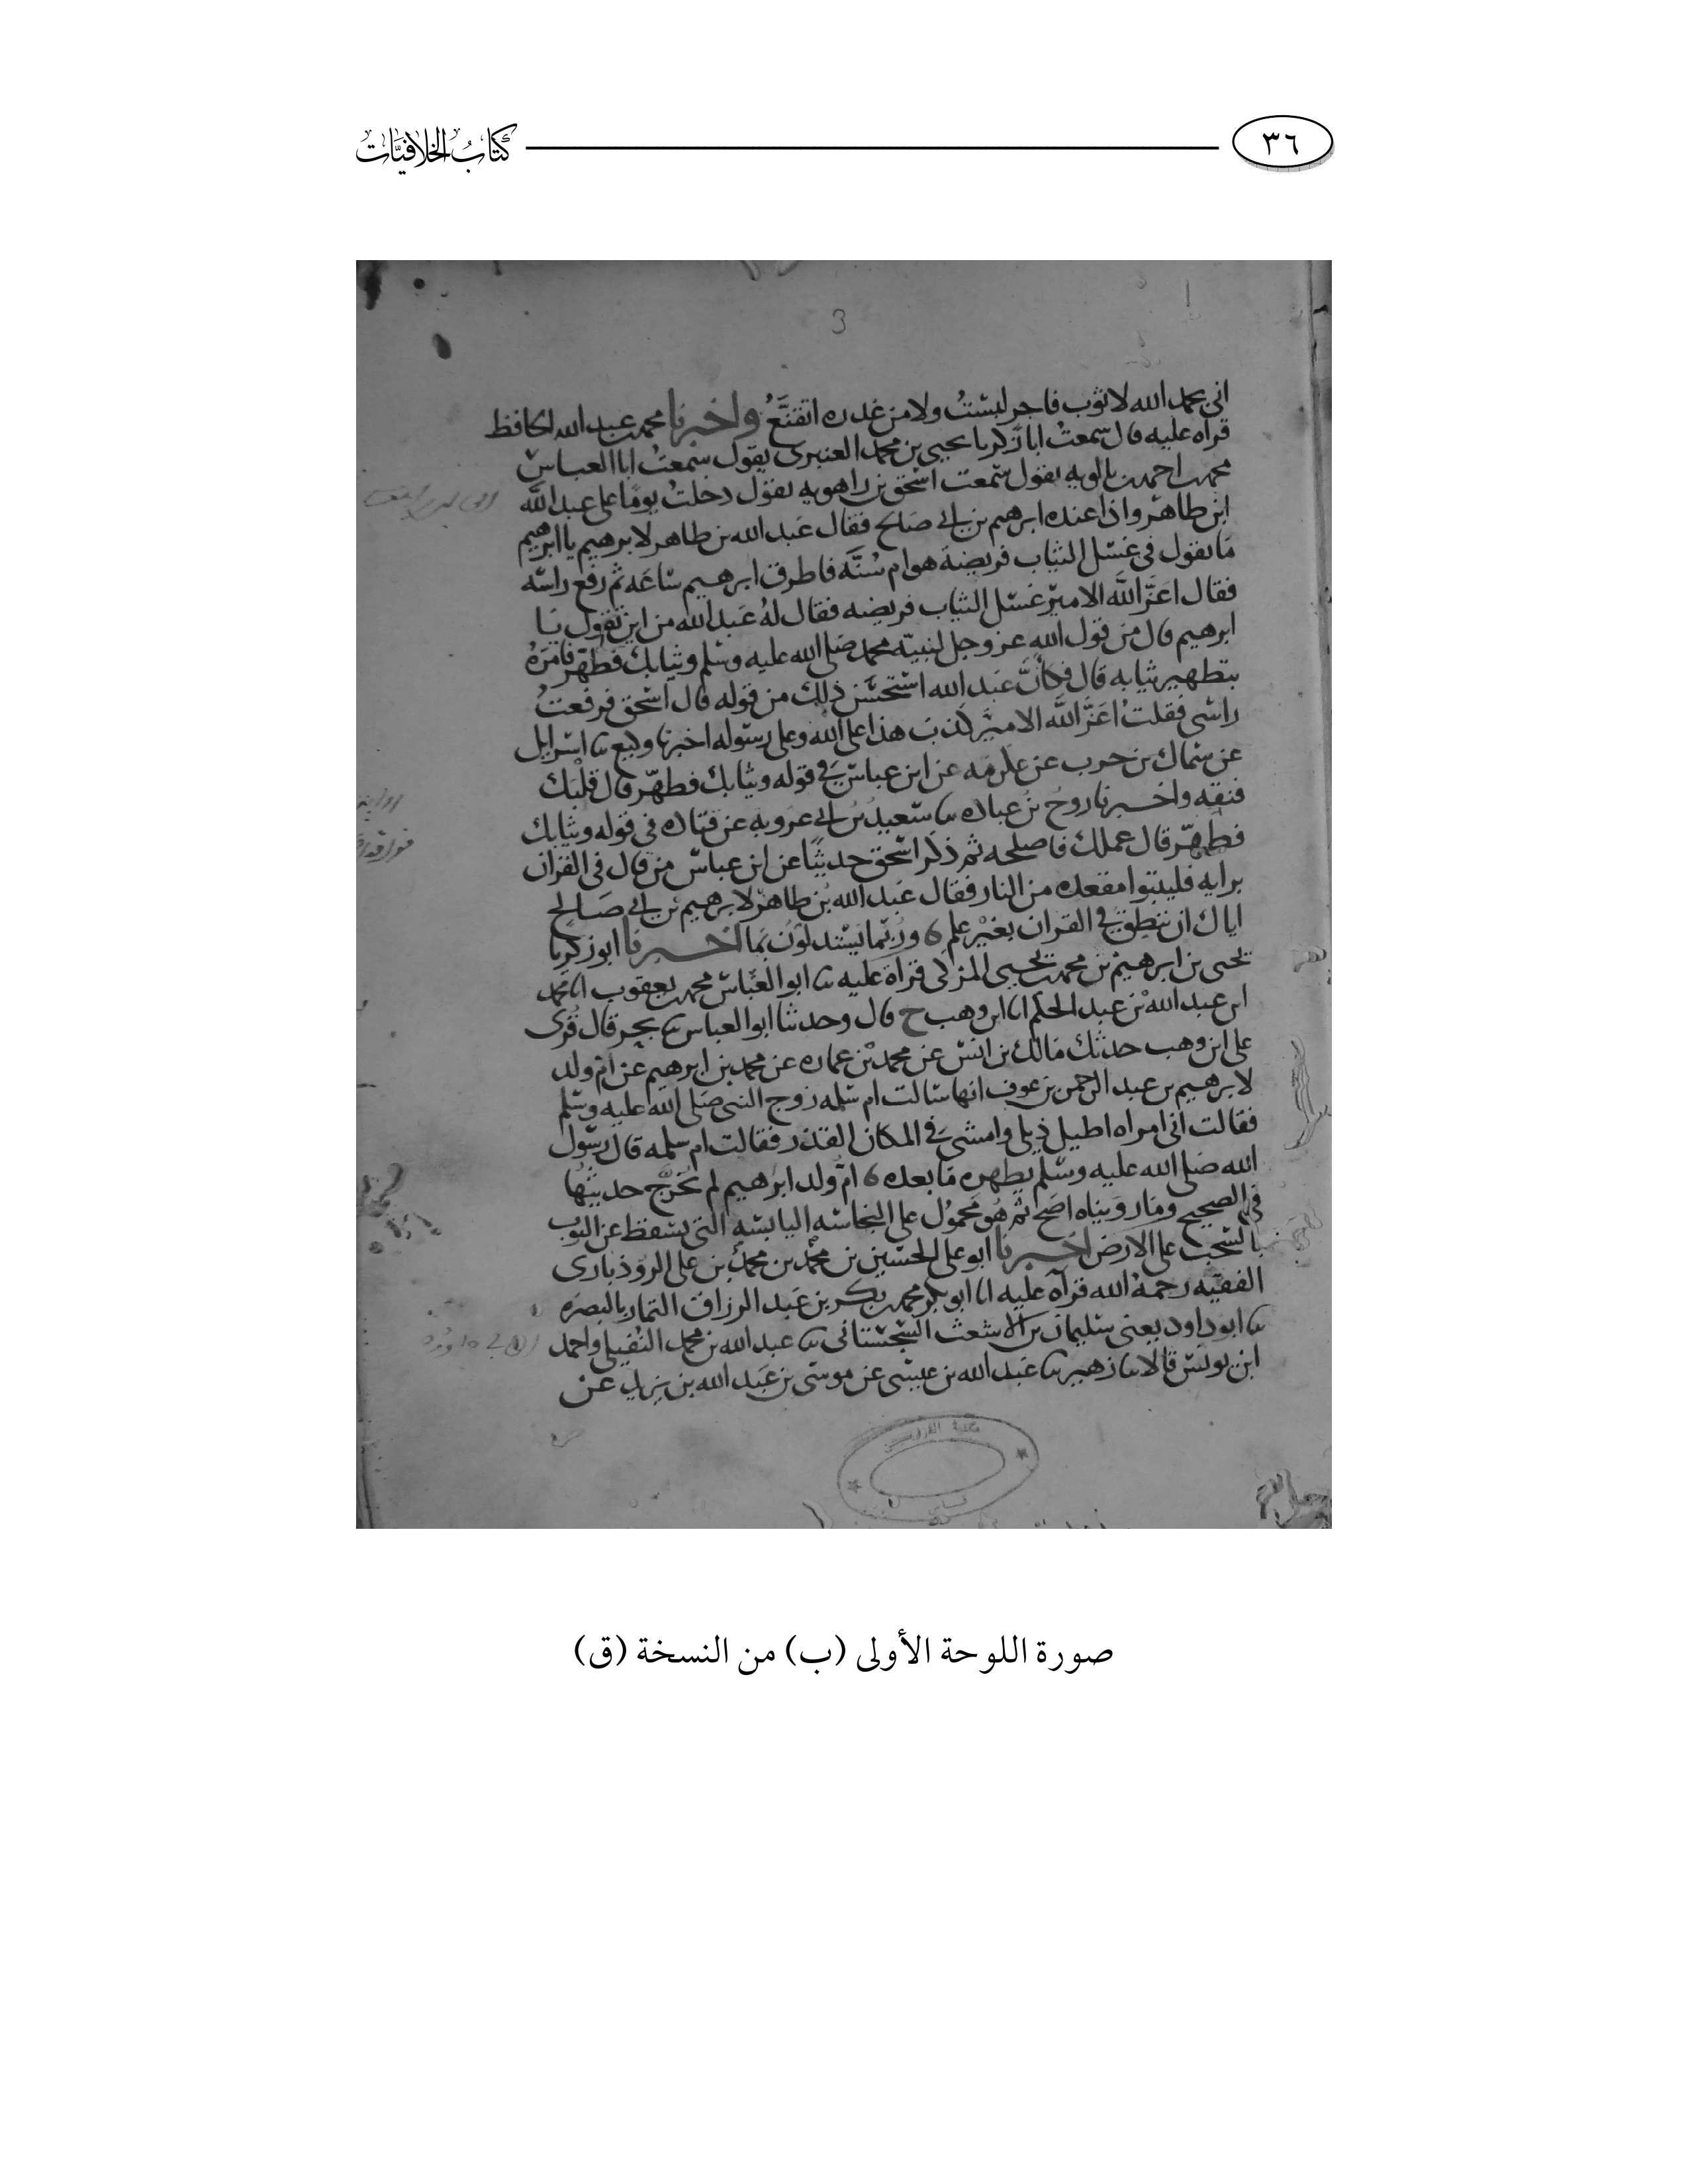 ٣٦
كتاب الخلافيات
3
اني بحمد الله لا ثوب فاجر لبستُ ولا من غدره اتقنَّعُ واخبرنا محمد بن عبد الله الحافظ
قراه عليه قال سمعتُ ابا زكريا يحيى بن محمد العنبري يقول سمعتُ ابا العباس
محمد بن احمد بن بالويه يقول سمعت اسحق بن راهويه يقول دخلتُ يومًا على عبد الله
ابن طاهر واذا عنده ابرهيم بن ابي صالح فقال عبد الله بن طاهر لابرهيم يا ابرهيم
ما تقول في غسل الثياب فريضة هو ام سُنَّه فاطرق ابرهيم ساعه ثم رفع راسه
فقال اعَزّ اللّه الامير غسل الثياب فريضه فقال لهُ عبد الله من اين تقول يا
ابرهيم قال من قول الله عز وجل لنبيّه محمد صلى الله عليه وسلم وثيابك فطهّر فامرهُ
بتطهير ثيابه قال فكأنَّ عبد الله استحسن ذلك من قوله قال اسحق فرفعتُ
راسي فقلتُ اعَزّ اللّه الامير كذب هذا على الله وعلى رسوله اخبرنا وكيع ثنا اسرايل
عن سماك بن حرب عن عكرمه عن ابن عباس في قوله وثيابك فطهّر قال قلبك
فنقه واخبرنا روحُ بنُ عباده ثنا سعيدُ بنُ ابي عروبه عن قتاده في قوله وثيابك
فطهّر قال عملك فاصلحه ثم ذكر اسحق حديثًا عن ابن عباس من قال في القران
برايه فليتبوا مقعده من النار فقال عبد الله بن طاهر لابرهيم بن ابي صالح
اياك ان تنطق في القران بغير علم وربّما يستدلون بما اخبرنا ابو زكريا
يحيى بن ابرهيم بن محمد بن يحيى المزكي قراة عليه ثنا ابو العباس محمد بن يعقوب انا محمد
ابن عبد الله بن عبد الحكم انا ابن وهب ح قال وحدثنا ابو العباس ثنا بحر قال قُرى
على ابن وهب حدثك مالك بن انس عن محمد بن عماره عن محمد بن ابرهيم عن ام ولد
لابرهيم بن عبد الرحمن بن عوف انها سالت ام سلمه زوج النبي صلى الله عليه وسلم
فقالت اني امراه اطيل ذيلي وامشي في المكان القذر فقالت ام سلمه قال رسول
الله صلى الله عليه وسلم يطهره ما بعده ام ولد ابرهيم لم يُخَرَّج حديثُها
في الصحيح وما رويناه اصح ثم هو محمول على النجاسه اليابسه التي تسقط عن الثوب
بالسحب على الارض اخبرنا ابو علي الحسين بن محمد بن محمد بن علي الروذباري
الفقيه رحمهُ الله قراة عليه انا ابو بكر محمد بن بكر بن عبد الرزاق التمار بالبصره
ثنا ابو داود يعني سليمان بن الاشعث السجستاني ثنا عبد الله بن محمد النفيلي واحمد
ابن يونس قالا ثنا زهير ثنا عبد الله بن عيسى عن موسى بن عبد الله بن يزيد عن
صورة اللوحة الأولى (ب) من النسخة (ق)